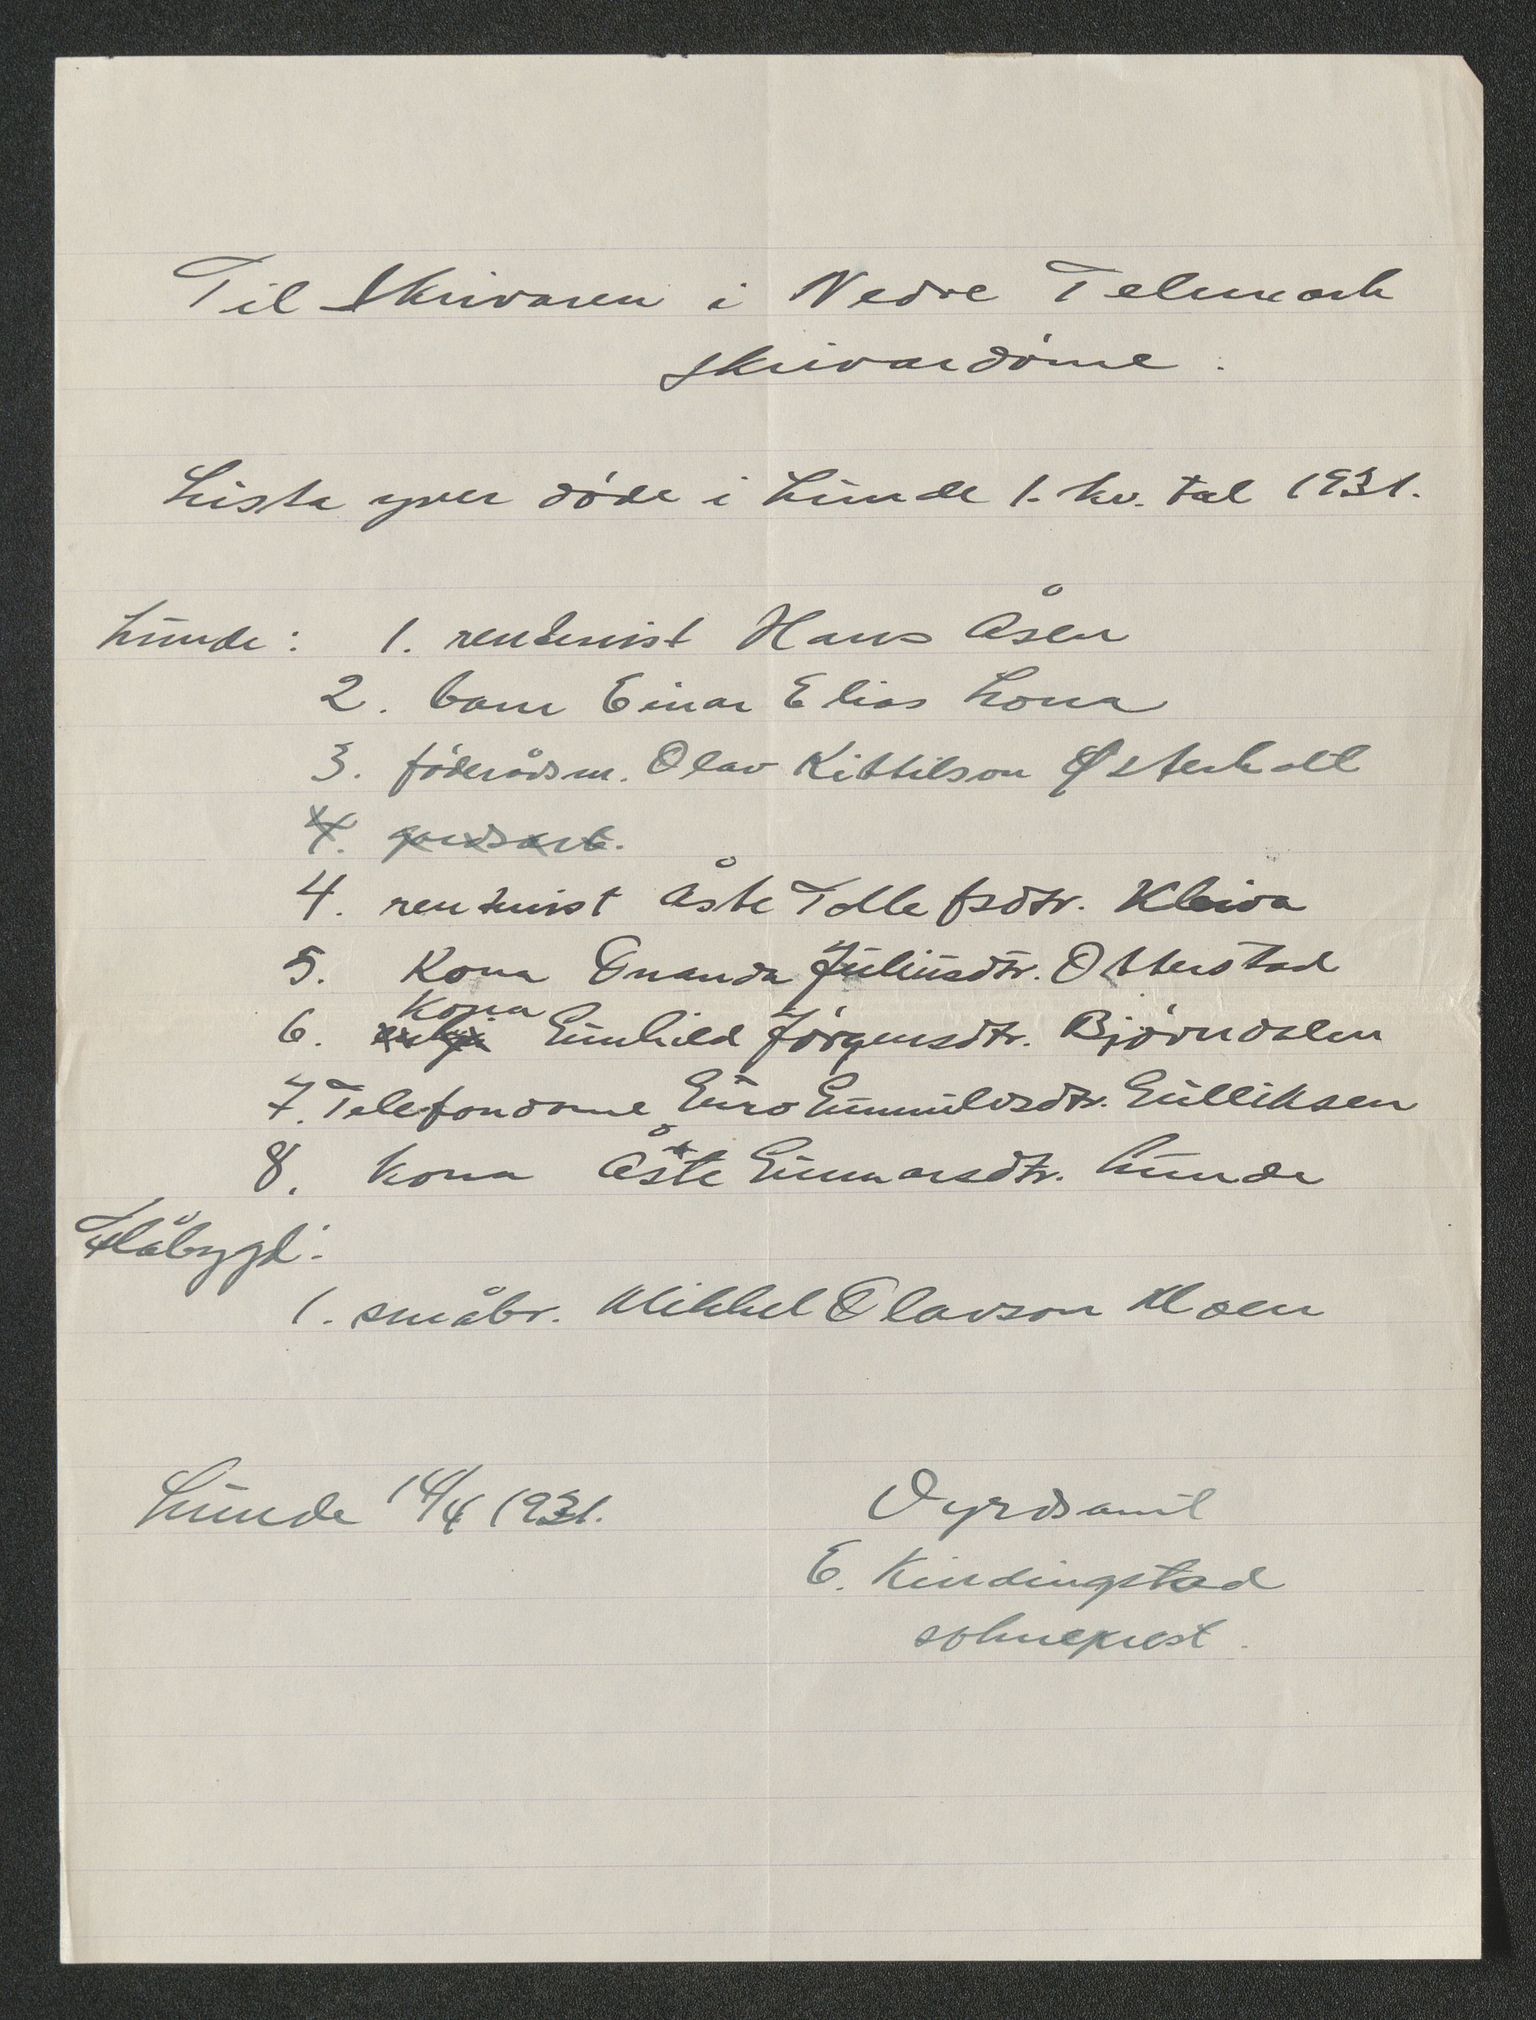 Til Skrivaren i Nedre Telemark
skrivardöme.
Lista yver döde i Lunde 1. kv. tal 1931.
Lunde: 1. rentenist Hans Åsen
2. barn Einar Elias Lona
3. föderådsm. Olav Kittilson Østerholt
4. gardsarb.
4. rentenist Åste Tollefsdtr. Kleiva
5. Kona Amanda Juliusdtr. Otterstad
Kona
6. enkja Gunhild Jörgensdtr. Bjørndalen
7. Telefondame Guro Gunnulvsdtr. Gulliksen
8. kona Åste Gunnarsdtr. Lunde
Flåbygd:
1. småbr. Mikkel Olavson Moen
Lunde 14/4 1931.
Vyrdsamt
E. Kindingstad
sokneprest.